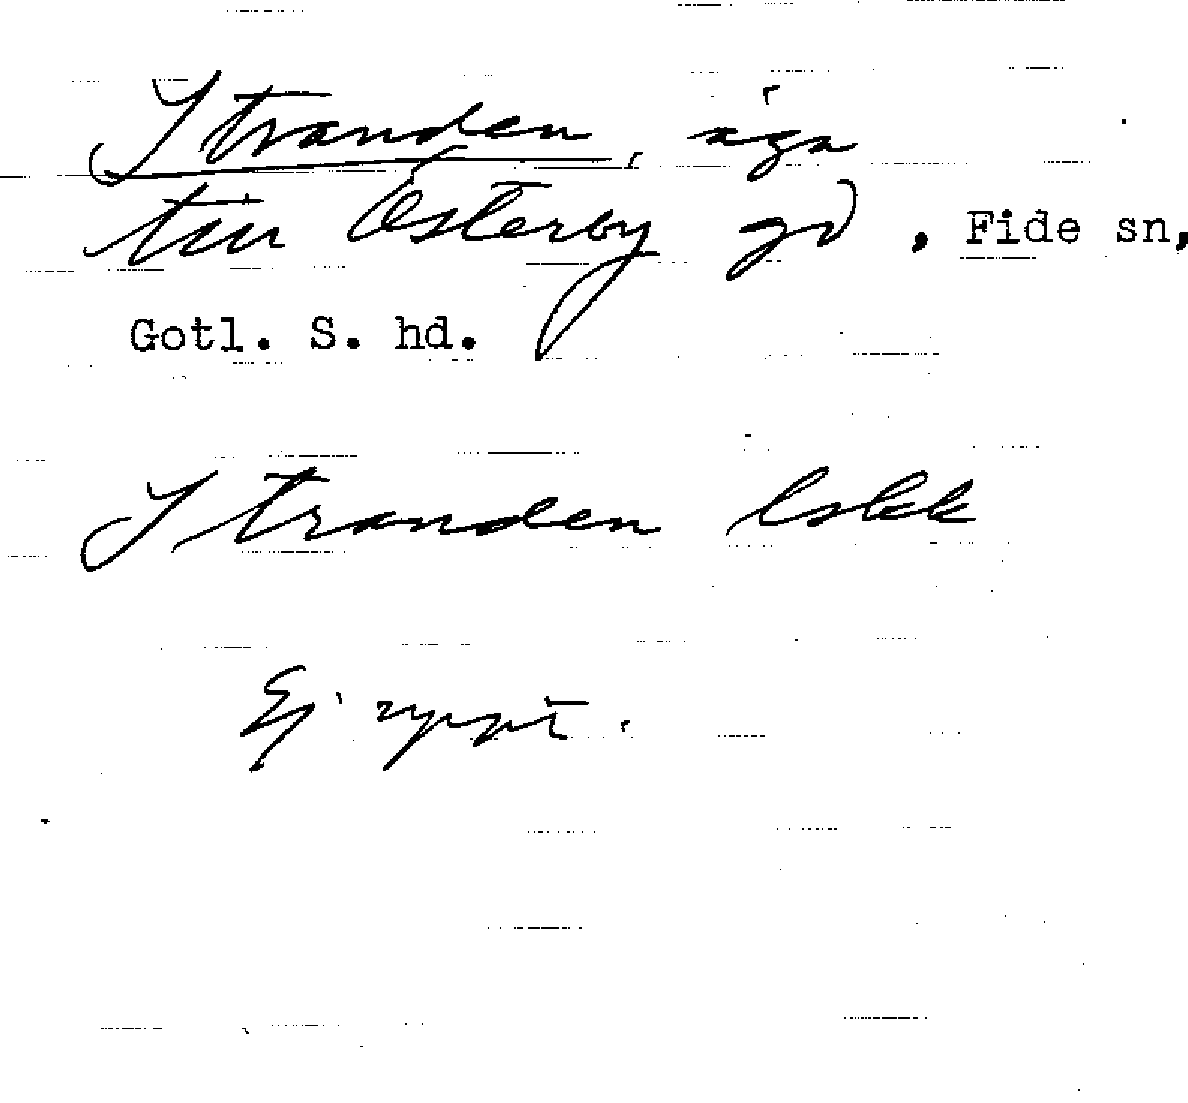 Stranden, äga
till Österby gd, Fide sn,
Gotl. S. hd.
Stranden
Ej uppt.